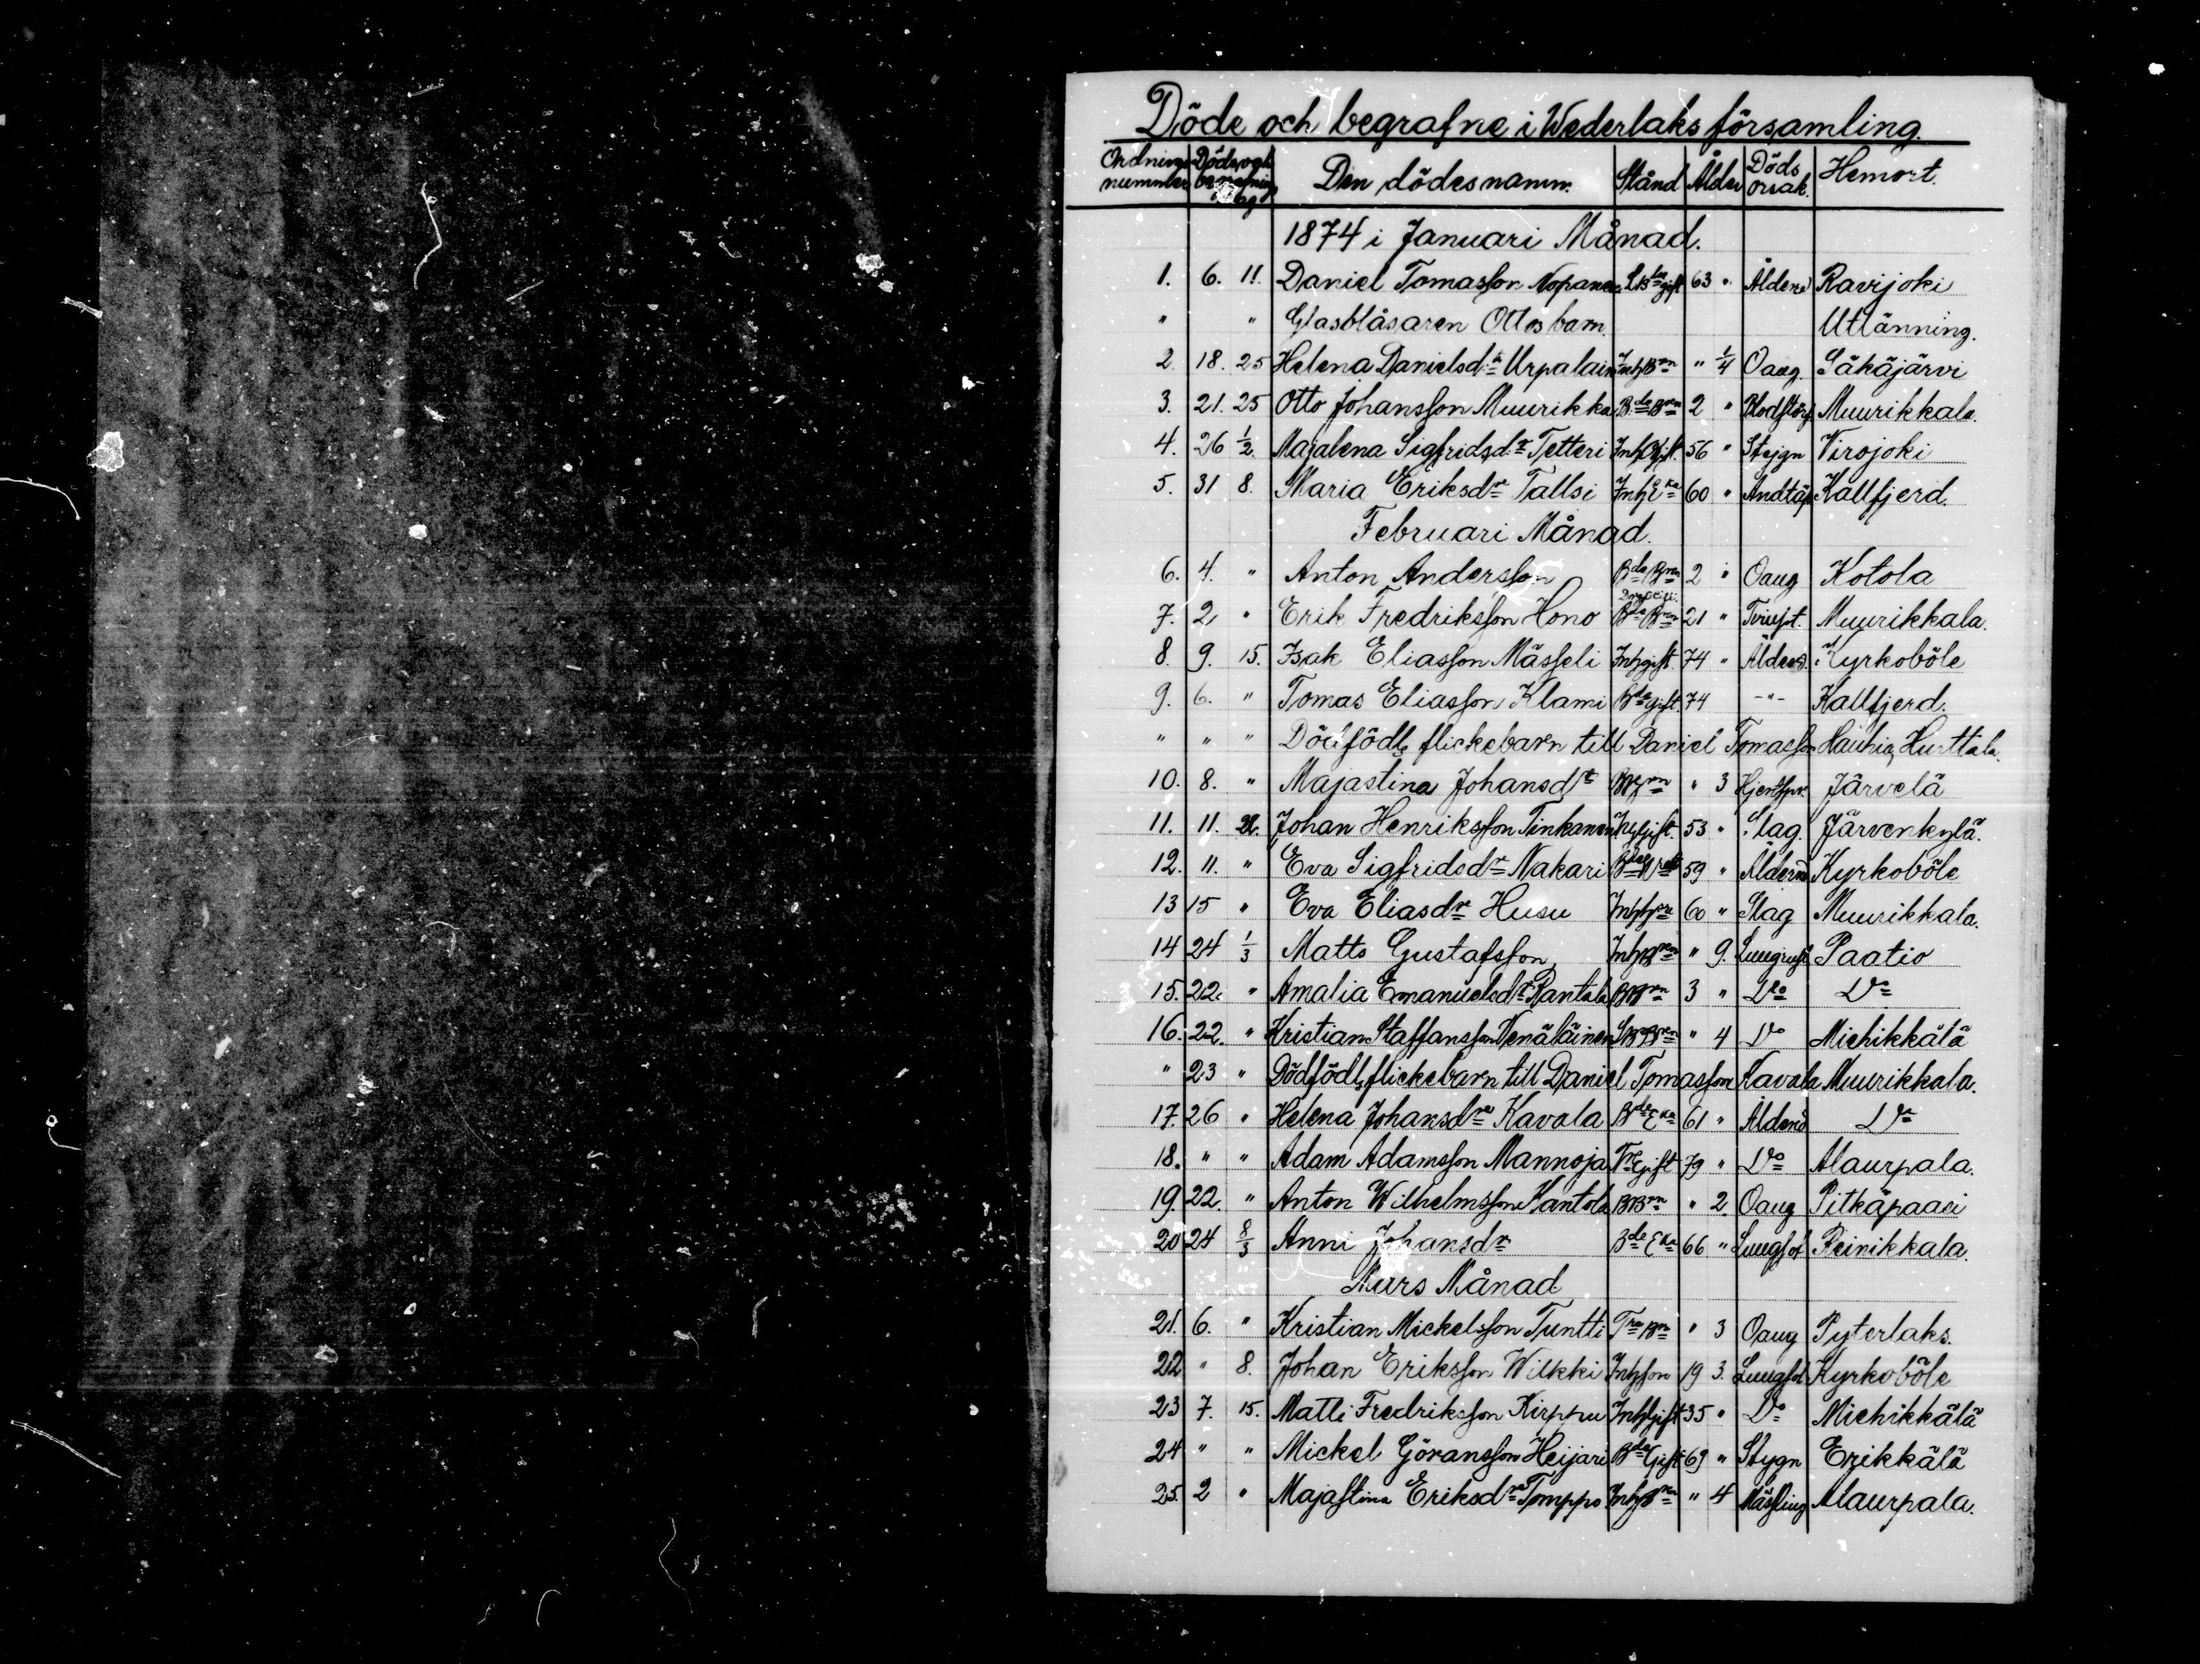 Döde och begrafne i Wederlaks församling.
Ordnings nummer Döds och begrafnings dag Den dödes namn. Stånd Ålder Döds orsak. Hemort.
1874 i Januari Månad.
1. 6. 11. Daniel Tomasson Nopanen gift 63 " Ålderd Ravijoki
" " Glasblåsaren Ottos barn. Utlänning.
2 18. 25 Helena Danielsdr Urpalain InhBrn " 1/4 Oang. Säkäjärvi
3. 21. 25 Otto Johansson Muurikka Bde Brn 2 " Muurikkala.
4. 26 1/2. Majalena Sigfridsdr Tetteri Inh Gift. 56 " Stejgn Virojoki
5. 31 8. Maria Eriksdr Tallsi Inh Eka 60 " Andtäp Kallfjerd.
Februari Månad.
6. 4. " Anton Andersson Bde Brn 2 " Oang Kotola
7. 2 " Erik Fredriksson Hono Bde Brn 21 " Muurikkala.
8. 9. 15. Isak Eliasson Mässeli Inhgift 74 " Ålderd. Kyrkoböle
9. 6. " Tomas Eliasson Klami Bde gift. 74 -"- Kallfjerd.
" " " Dödfödt flickebarn till Daniel Tomasson Hauhia, Hurttala.
10. 8. " Majastina Johansdr " 3 Järvelä
11. 11. 22. Johan Henriksson Tinkanen Inh Gift. 53 " Slag. Järvenkylä.
12. 11. " Eva Sigfridsdr Nakari 59 " Ålderd Kyrkoböle
13 15 " Eva Eliasdr Husu 60 " Slag Muurikkala.
14 24 1/3 Matts Gustafsson InhBrn " 9. Paatio
15. 22. " Amalia Emanuelsdr Rantala BBrn 3 " Do Do
16. 22. " Kristian Staffansson Venäläinen " 4 Do Michikkälä
" 23 " Dödfödt flickebarn till Daniel Tomasson Kavala Muurikkala.
17. 26 " Helena Johansdr Kavala Bde Eka 61 " Ålderd Do
18. " " Adam Adamsson Mannoja Gift 79 " Do Alaurpala.
19. 22. " Anton Wilhelmsson Kantola BBrn " 2. Oang Pitkäpaaci
20 24 8/3 Anni Johansdr Bde Eka 66 " Lungsot Reinikkala.
Mars Månad
21. 6. " Kristian Mickelsson Tuntti Brn " 3 Oang Pyterlaks.
22 " 8. Johan Eriksson Wilkki Inhson 19 3. Lungsot Kyrkoböle
23 7. 15. Matti Fredriksson Kirppu InhGift 35 " Do Michikkälä
24 " " Mickel Göransson Heijari Bde Gift 69 " Stygn Erikkälä
25. 2 " Majastina Eriksdr Tomppo InhBrn " 4 Mässling Alaurpala.